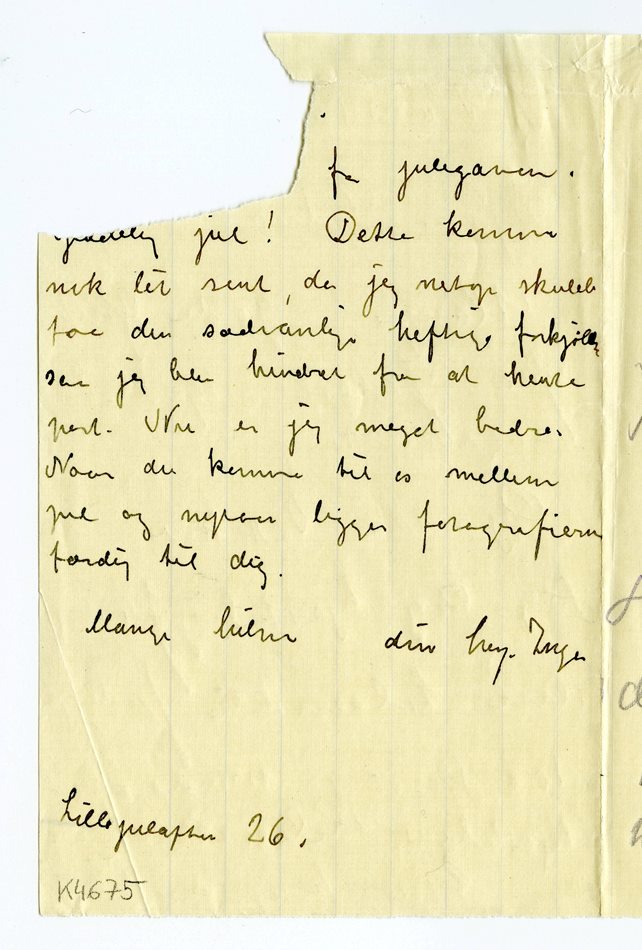 fra julegaven.
Gledelig jul! Dette kommer
nok litt sent, da jeg netop skulde
faa den sedvanlige heftige forkjølelse
saa jeg blev hindret fra at hente
post. Nu er jeg meget bedre.
Naar du kommer til os mellem
jul og nytaar ligger fotografierne
færdig til dig.
Mange hilsner din heng. Inga
Lillejuleaften 26.
K4675